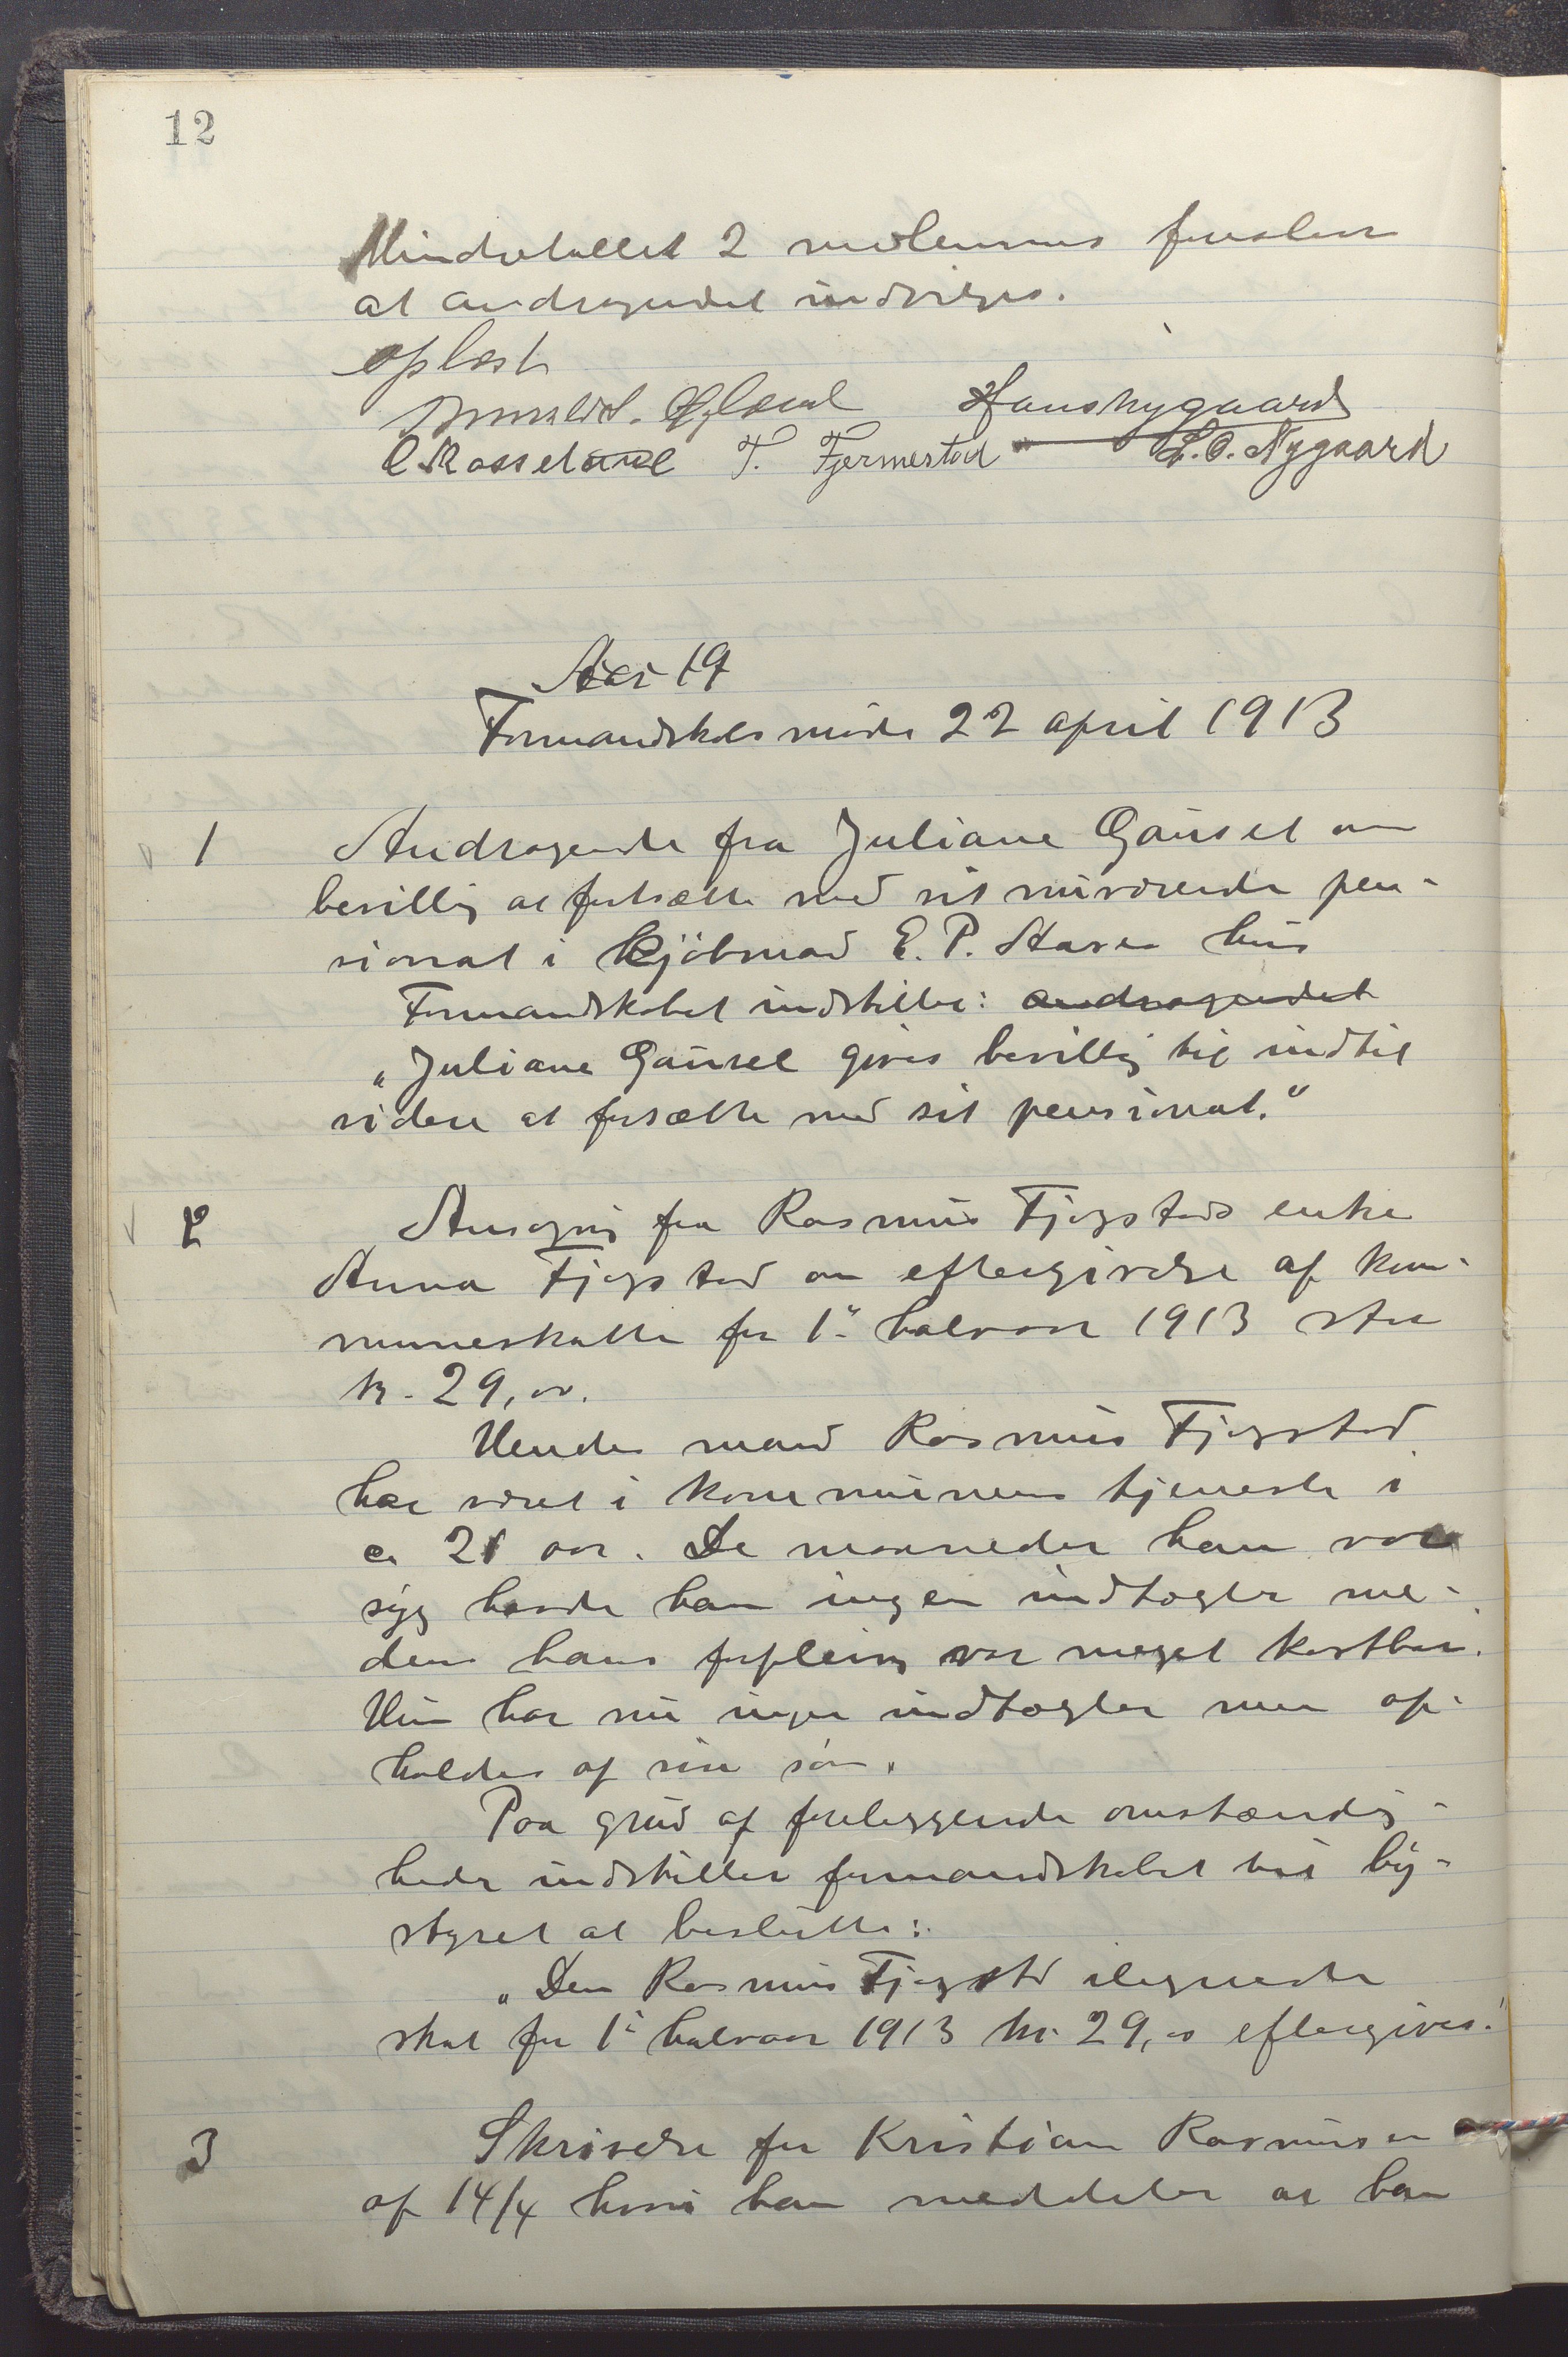 12
Mindretallet 2 medlemmer foreslaar
at andragendet indvilges.
oplæst
Hans Nygaard
C Rosseland T. Fjermestad L. O. Nygaard
Formandskabsmöde 22 april 1913
1 Andragende fra Juliane Gausel om
bevillig at fortsætte med sit nuværende pen-
sionat i kjöbmand E. P. Stavers hus
Formandskabet indstiller: andragendet
"Juliane Gausel gives bevillig til indtil
videre at forsætte med sit pensionat."
2 Ansøgning fra Rasmus Fjogstads enke
Anna Fjogstad om eftergivelse af kom-
muneskatten for 1ste halvaar 1913 stor
kr. 29,00.
Hendes mand Rasmus Fjogstad
har været i kommunens tjeneste i
ca 21 aar. De maaneder han var
syg havde han ingen indtægter me-
dens hans forpleining var meget kostbar.
Hun har nu ingen indtægter men op-
holdes af sin sön.
Paa grund af foreliggende omstændig-
heder indstiller formandskabet til by-
styret at beslutte:
"Den Rasmus Fjogstad ilignede
skat for 1ste halvaar 1913 kr. 29,00 eftergives."
3 Skrivelse fra Kristian Rasmussen
af 14/4 hvori han meddeler at han